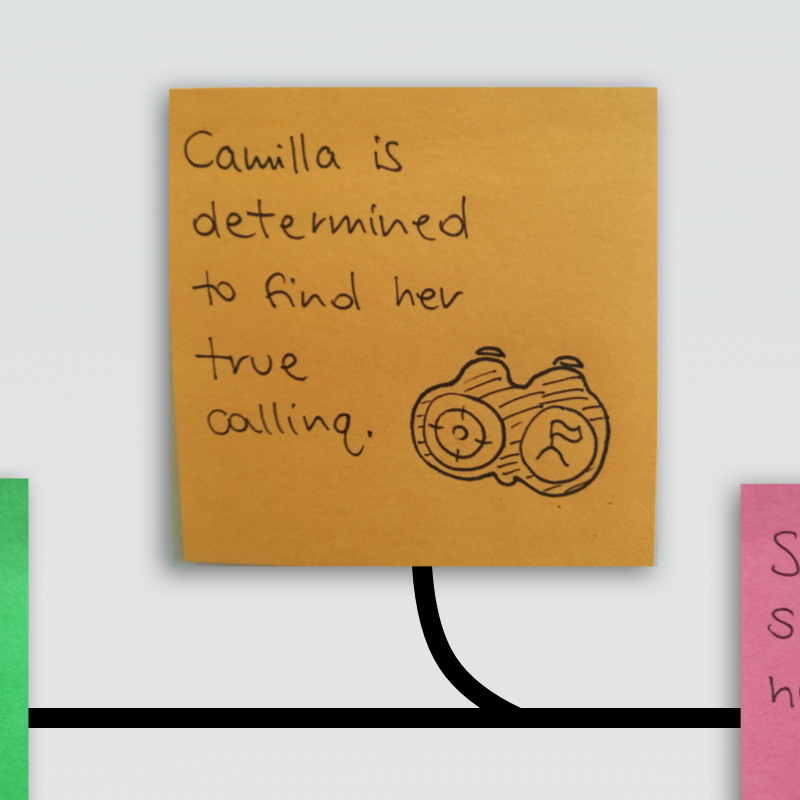 Camilla is
determined
to find her
true
calling.
S
s
h